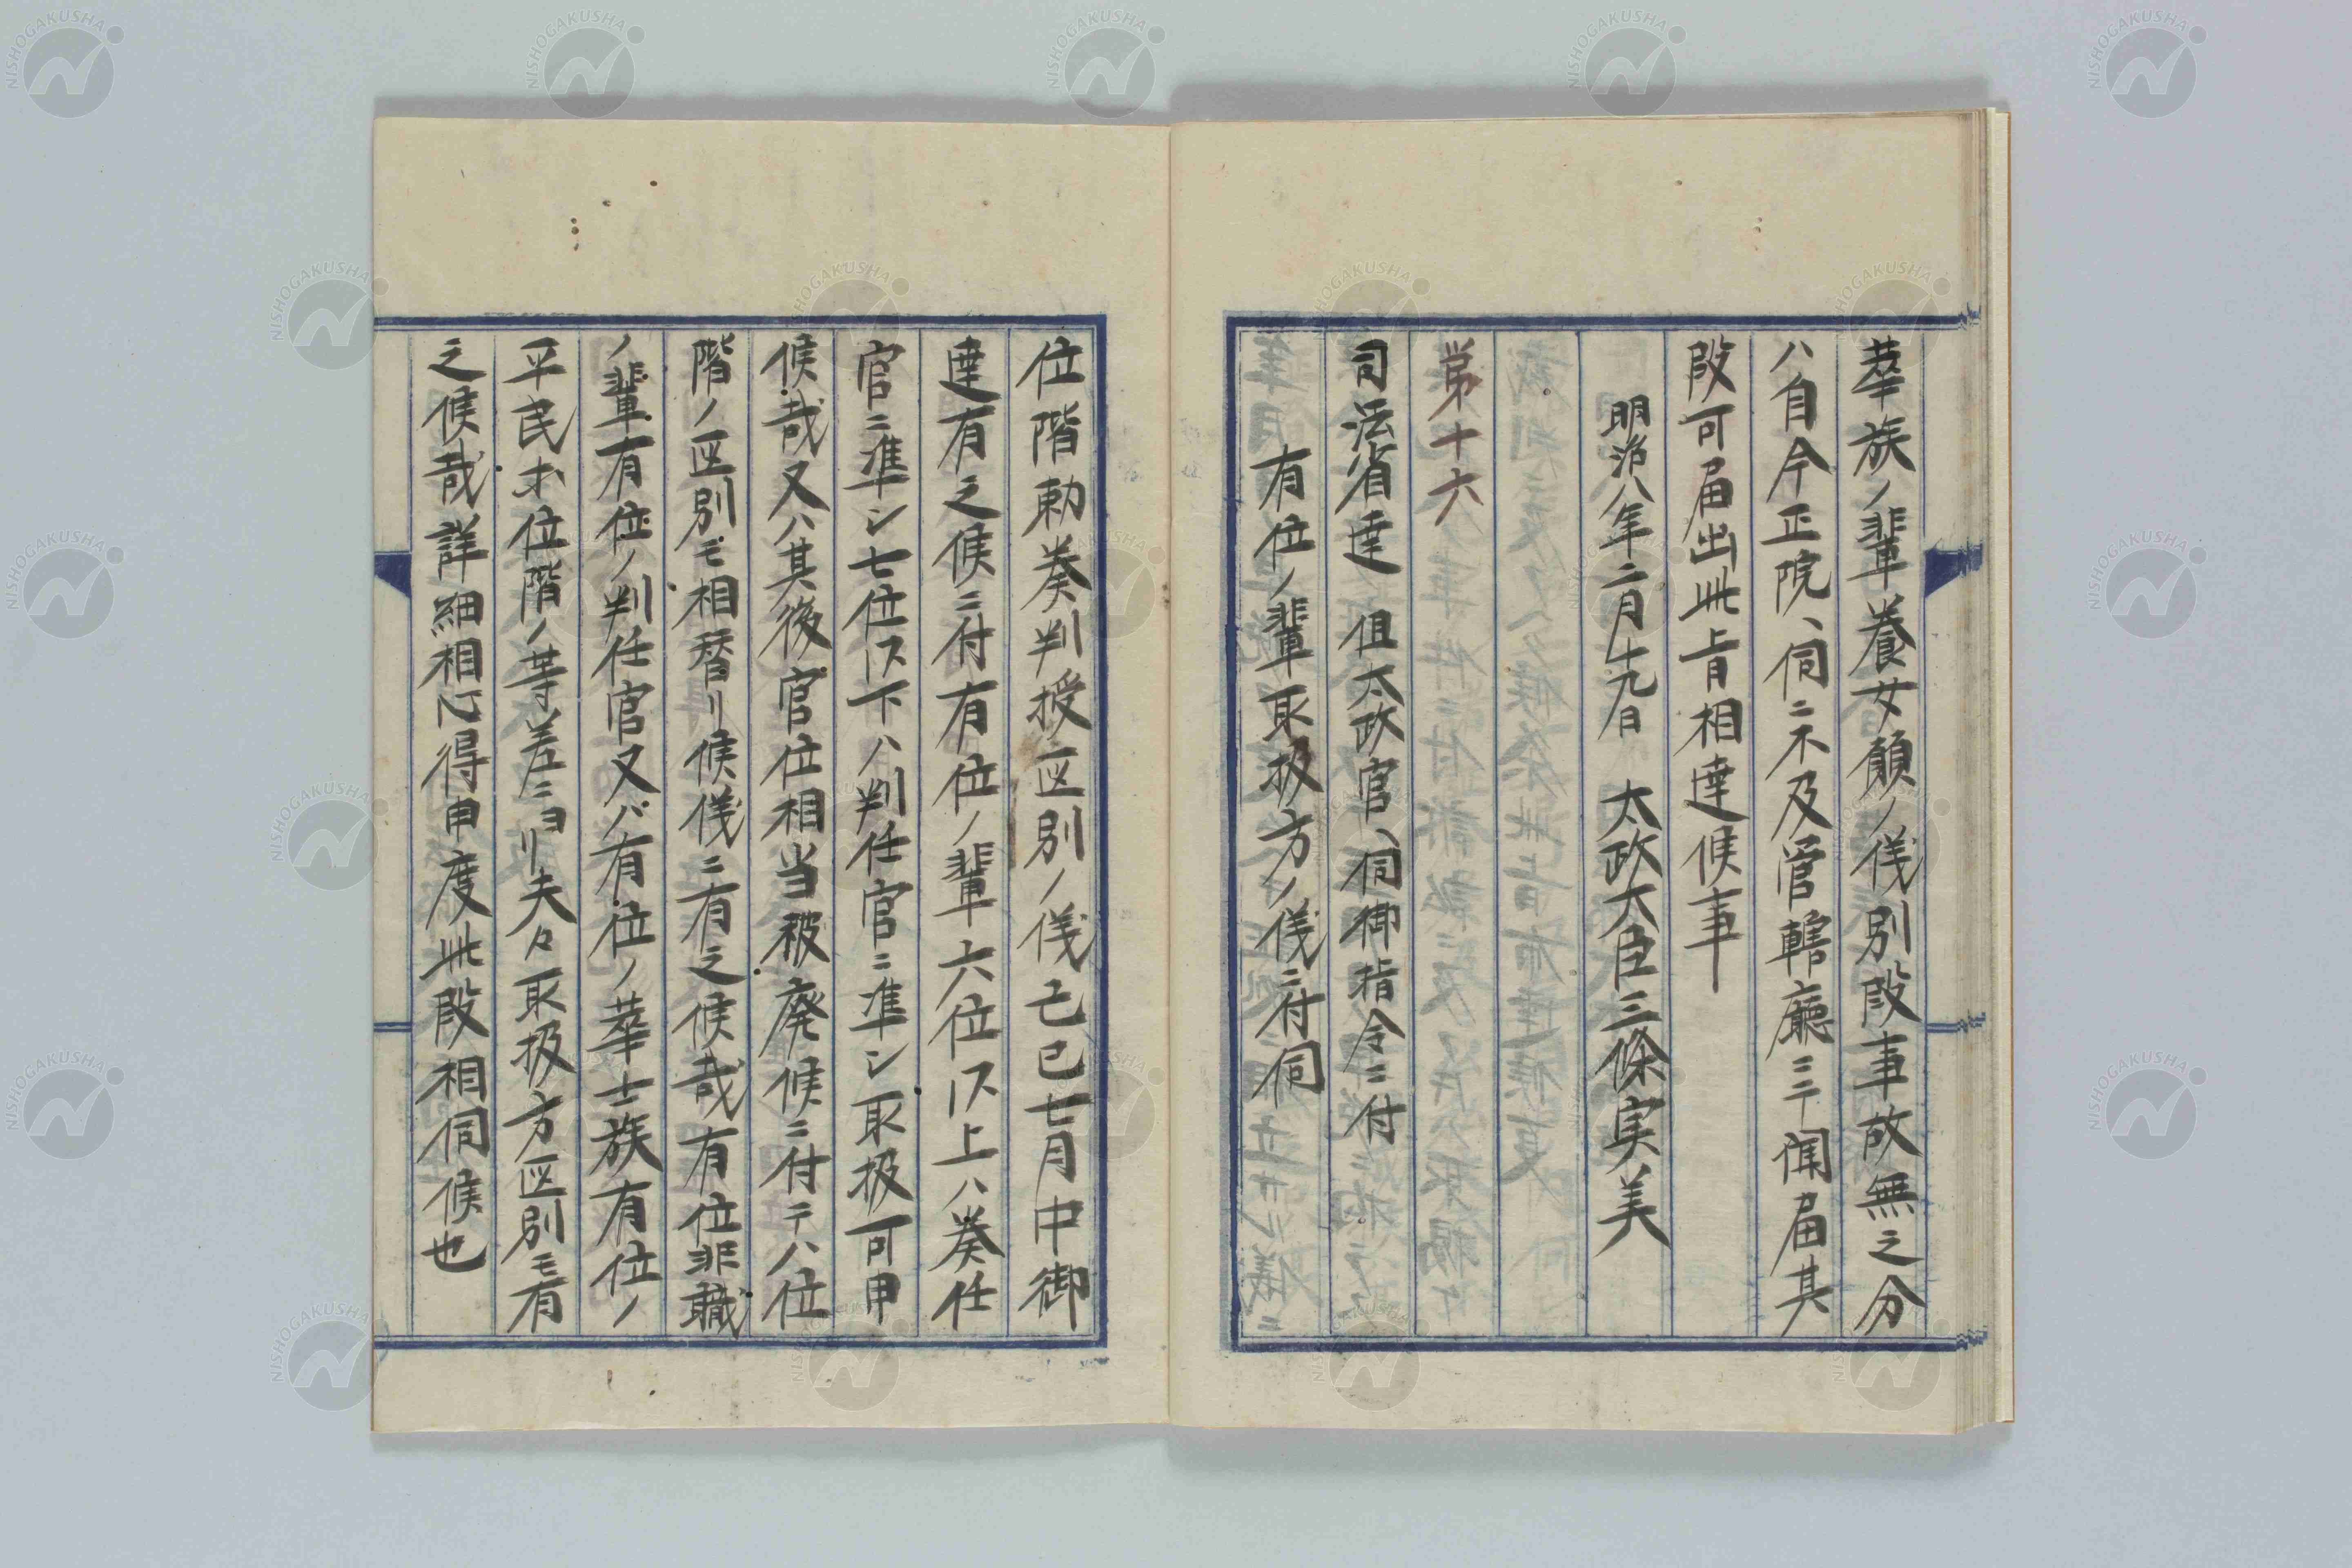 華族ノ輩養女願ノ儀別段事故無之分
ハ自今正院ヘ伺ニ不及管轄廳ニテ聞届其
段可届出此旨相達候事
明治八年二月十九日　太政大臣三條実美
第十六
司法省達　但太政官ヘ伺御指令ニ付
有位ノ輩取扱方ノ儀ニ付伺
位階勅奏判授区別ノ儀己巳七月中御
達有之候ニ付有位ノ輩六位以上ハ奏任
官ニ準シ七位以下ハ判任官ニ準シ取扱可申
候哉又ハ其後官位相当被廃候ニ付テハ位
階ノ区別モ相替リ候儀ニ有之候哉有位非職
ノ輩有位ノ判任官又ハ有位ノ華士族有位ノ
平民等位階ノ等差ニヨリ夫々取扱方区別モ有
之候哉詳細相心得申度此段相伺候也
NISHOGAKUSHA